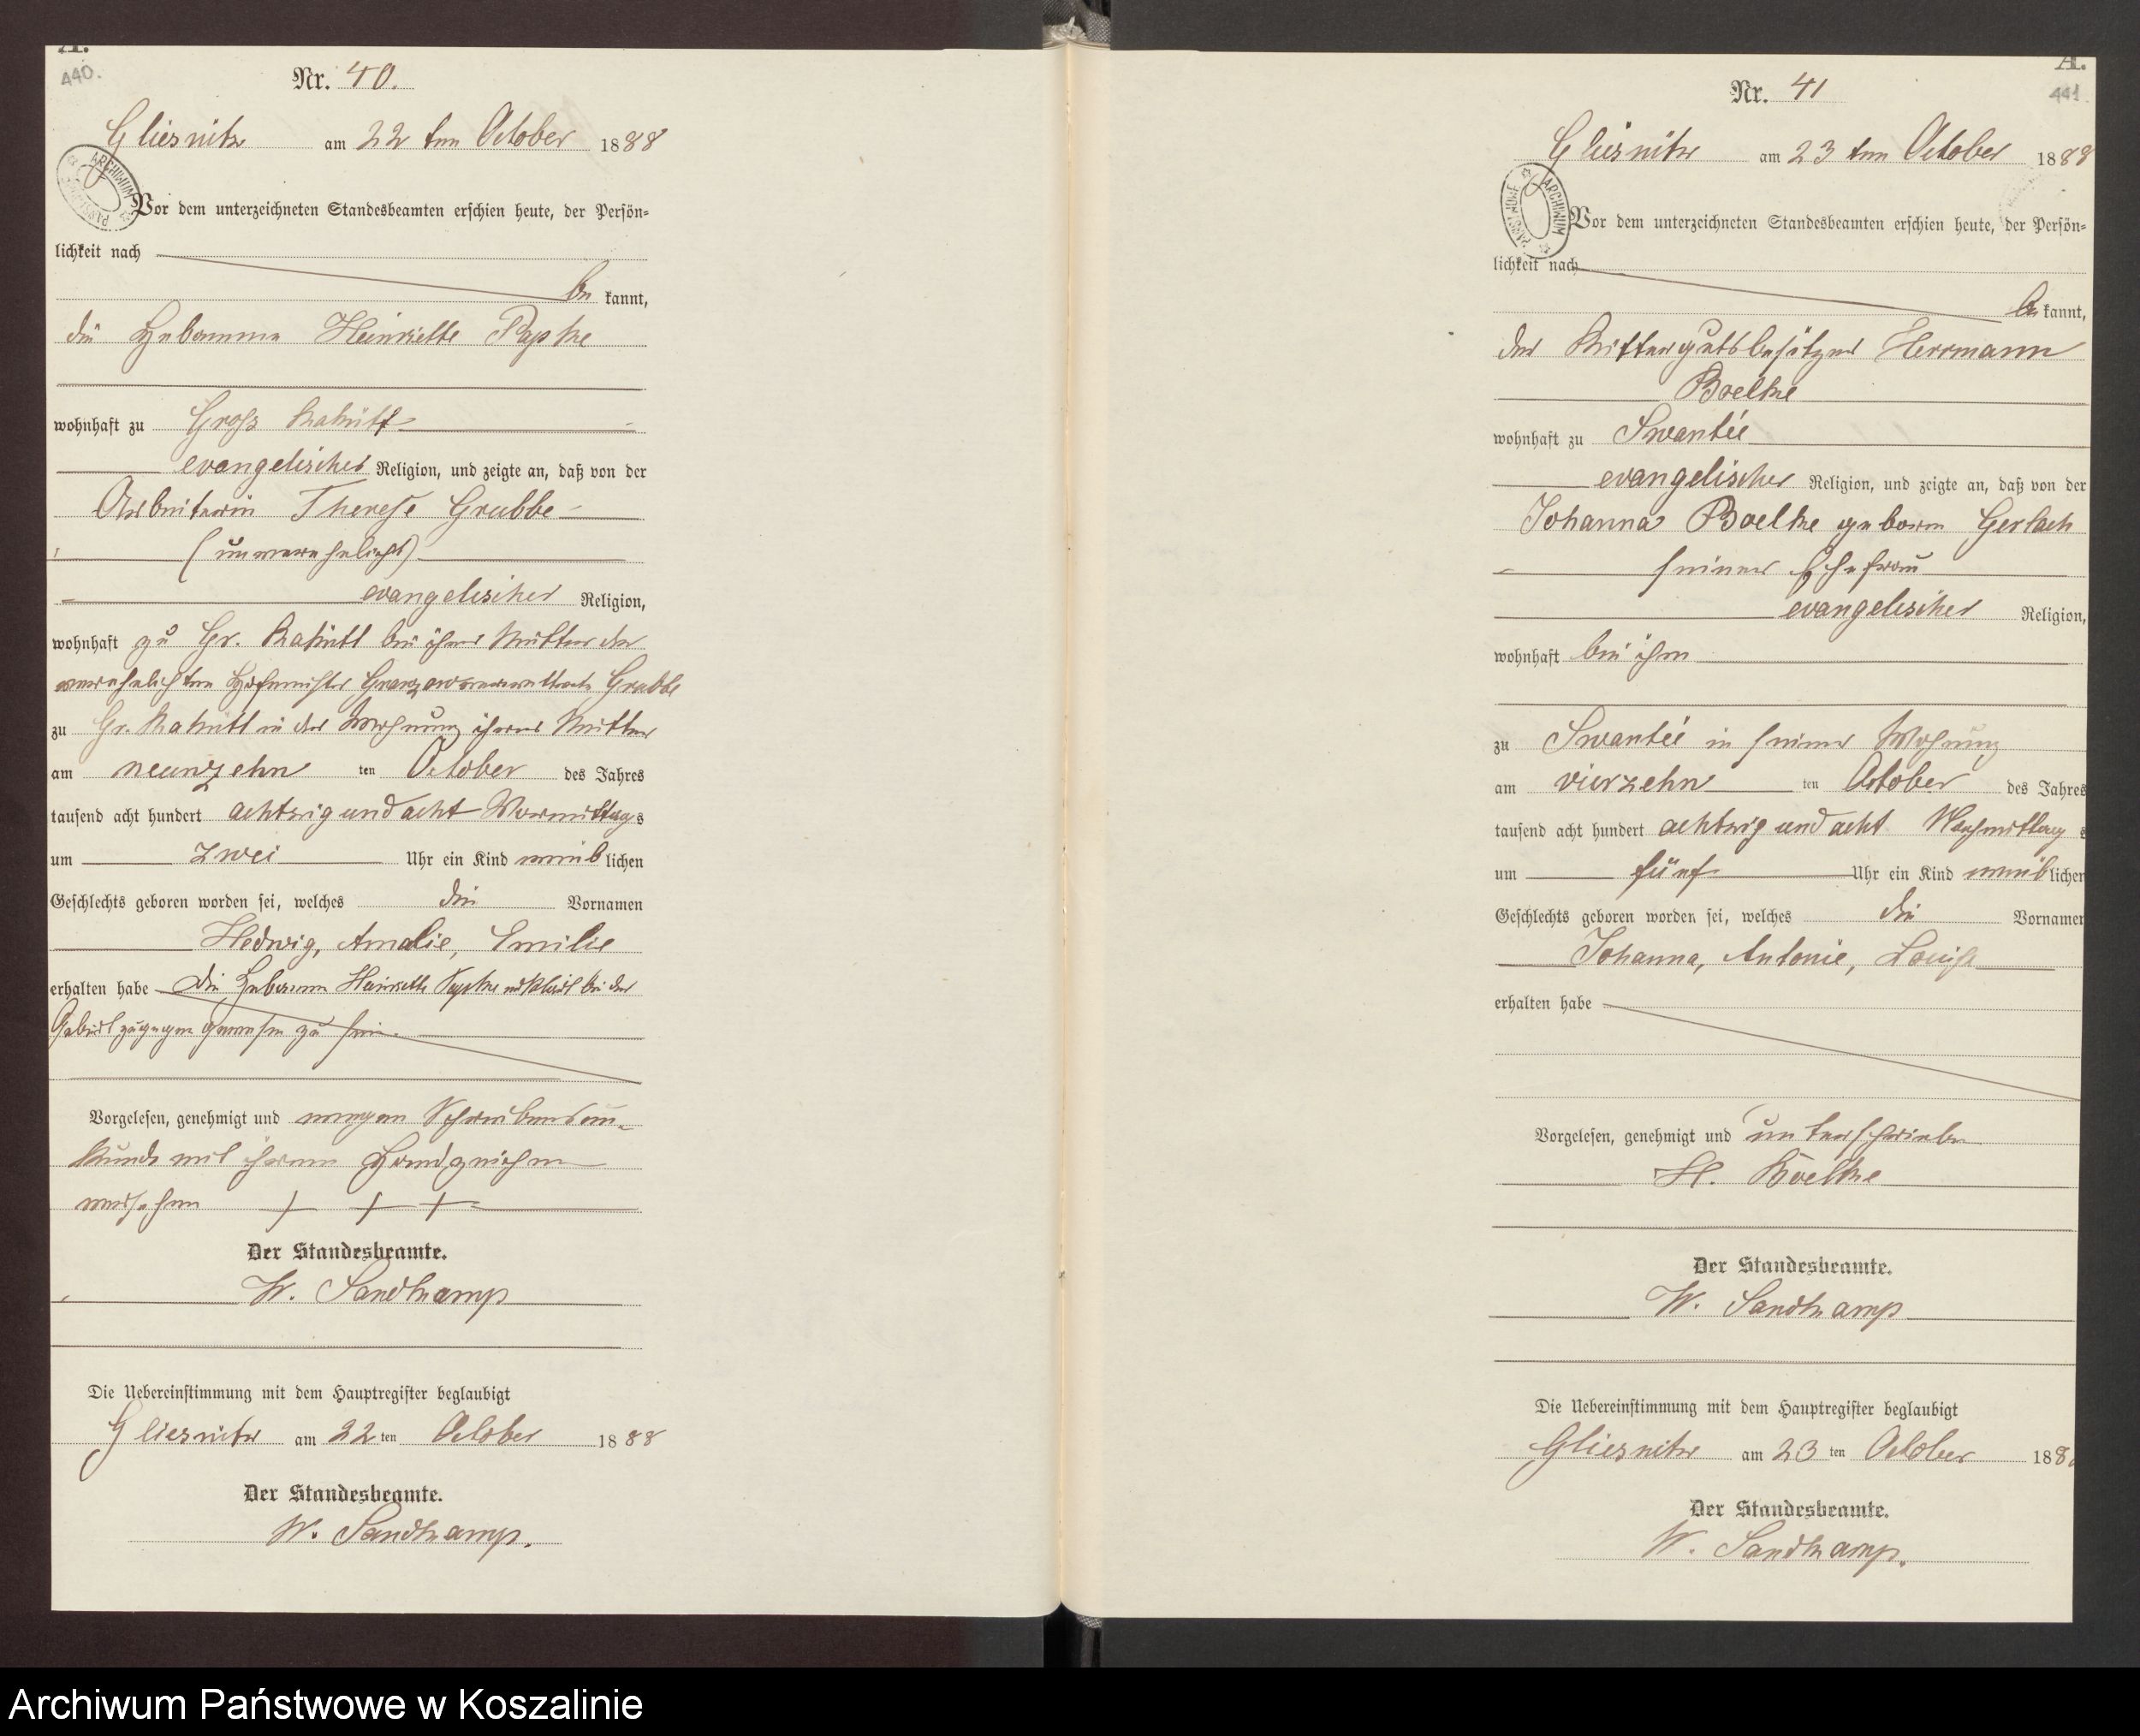 A.
440.
Nr. 40.
Gliesnitz am 22 ten October 1888
ARCHIWUM PAŃSTWOWE
Vor dem unterzeichneten Standesbeamten erschien heute, der Persön-
lichkeit nach
be kannt,
die Hebamme Heinriette Papke
wohnhaft zu Gross Rakitt
evangelischer Religion, und zeigte an, daß von der
Arbeiterin Therese Grubbe
(unverehelicht)
evangelischer Religion,
wohnhaft zu Gr. Rakitt bei ihrer Mutter der
verehelichten Hofmeister Grubbe
zu Gr. Rakitt in der Wohnung ihrer Mutter
am neunzehn ten October des Jahres
tausend acht hundert achtzig und acht Vormittags
um zwei Uhr ein Kind weiblichen
Geschlechts geboren worden sei, welches die Vornamen
Hedwig, Amalie, Emilie
erhalten habe Die Hebamme Heinriette Papke erklärt bei der
Geburt zugegen gewesen zu sein.
Vorgelesen, genehmigt und wegen Schreibensun-
kunde mit ihrem Handzeichen
versehen + + +
Der Standesbeamte.
W. Sandkamp
Die Uebereinstimmung mit dem Hauptregister beglaubigt
Gliesnitz am 22 ten October 1888
Der Standesbeamte.
W. Sandkamp.
A.
441
Nr. 41
Gliesnitz am 23 ten October 1888
ARCHIWUM PAŃSTWOWE
Vor dem unterzeichneten Standesbeamten erschien heute, der Persön-
lichkeit nach
be kannt,
der Rittergutsbesitzer Herrmann
Boelke
wohnhaft zu Swantee
evangelischer Religion, und zeigte an, daß von der
Johanna Boelke geboren Gerlach
seiner Ehefrau
evangelischer Religion,
wohnhaft bei ihm
zu Swantee in seiner Wohnung
am vierzehn ten October des Jahres
tausend acht hundert achtzig und acht Nachmittags
um fünf Uhr ein Kind weiblichen
Geschlechts geboren worden sei, welches die Vornamen
Johanna, Antonie, Louise
erhalten habe
Vorgelesen, genehmigt und unterschrieben
H. Boelke
Der Standesbeamte.
W. Sandkamp
Die Uebereinstimmung mit dem Hauptregister beglaubigt
Gliesnitz am 23 ten October 188
Der Standesbeamte.
W. Sandkamp.
Archiwum Państwowe w Koszalinie